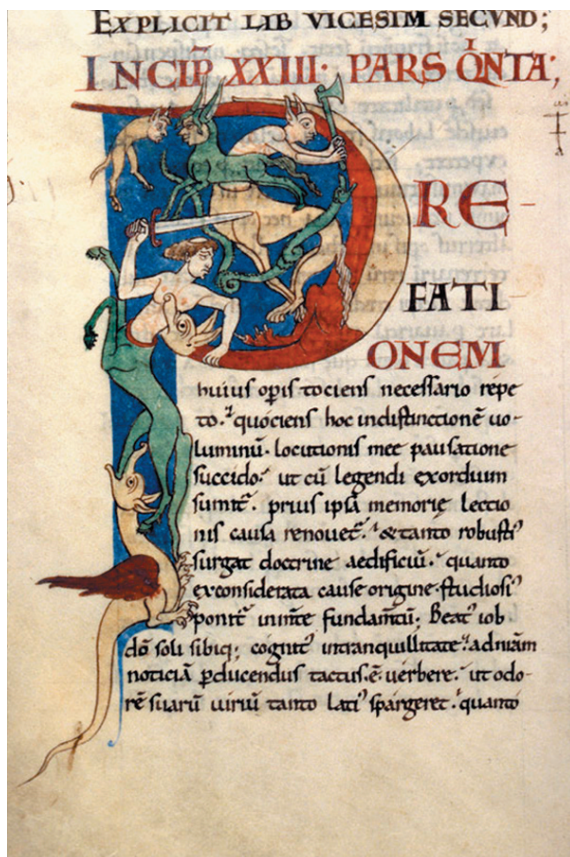 EXPLICIT LIB VICESIM SECVND;
INCIP̄ XXIII· PARS QiNTA;
PRE
FATI
ONEM
huius opis tociens necessario repe
to· quociens hoc indistinctionē uo
luminū· locutionis mee pausatione
succido· ut cū legendi exordium
sumit᷑· prius ipsa memorie lectio
nis causa renouet᷑· & tanto robusti᷒
surgat doctrine aedificiū· quanto
exconsiderata cause origine· studiosi᷒
ponit᷑ inmte fundamtū; Beat᷒ iob
dō soli sibiq; cognit᷒ intranquillitate· adnrām
noticiā pducendus tactus·ē· uerbere· ut odo-
rē suarū uiriū tanto lati᷒ spargeret· quanto